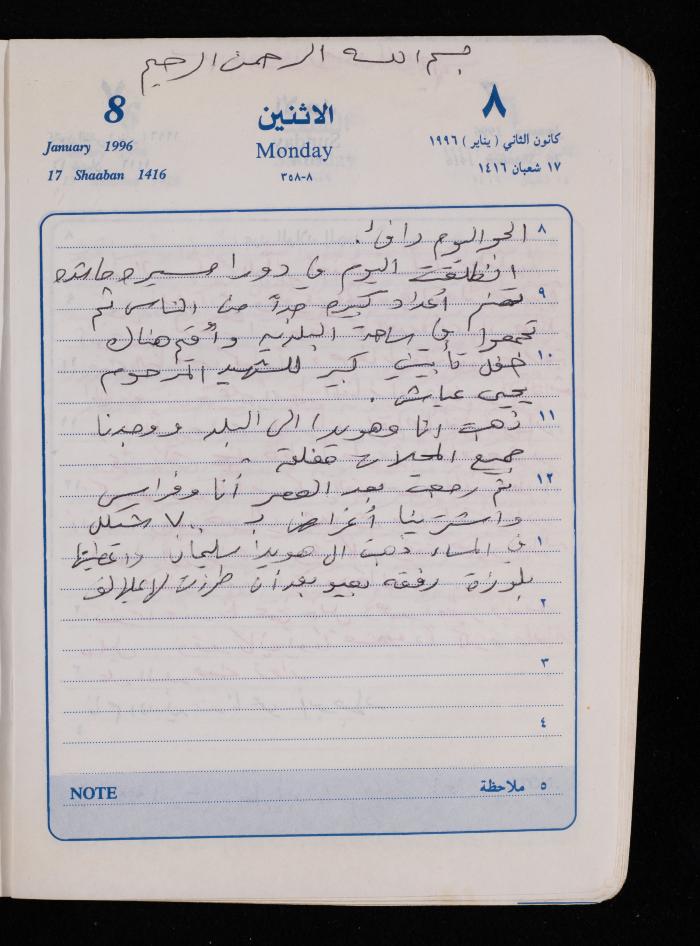 بسم الله الرحمن الرحيم
8 الاثنين ٨
January 1996 Monday كانون الثاني ( يناير ) ١٩٩٦
17 Shaaban 1416 ٨-٣٥٨ ١٧ شعبان ١٤١٦
٨ الجو اليوم دافئ.
انطلقت اليوم في دورا مسيرة حاشدة
٩ تضم أعداد كبيرة جداً من الناس ثم
تجمعوا في ساحة البلدية وأقيم هناك
١٠ حفل تأبيني كبير للشهيد المرحوم
يحيى عياش.
١١ ذهبت أنا وهويدا الى البلد ووجدنا
جميع المحلات مغلقة.
١٢ ثم رجعت بعد العصر أنا وفراس
واشترينا أغراض بـ ٧٠٠ شيكل
١ في المساء ذهبت الى هويدا سليمان وأعطيتها
بلوزة رفقة بعد أن طرزت لها
٢
٣
٤
NOTE ٥ ملاحظة